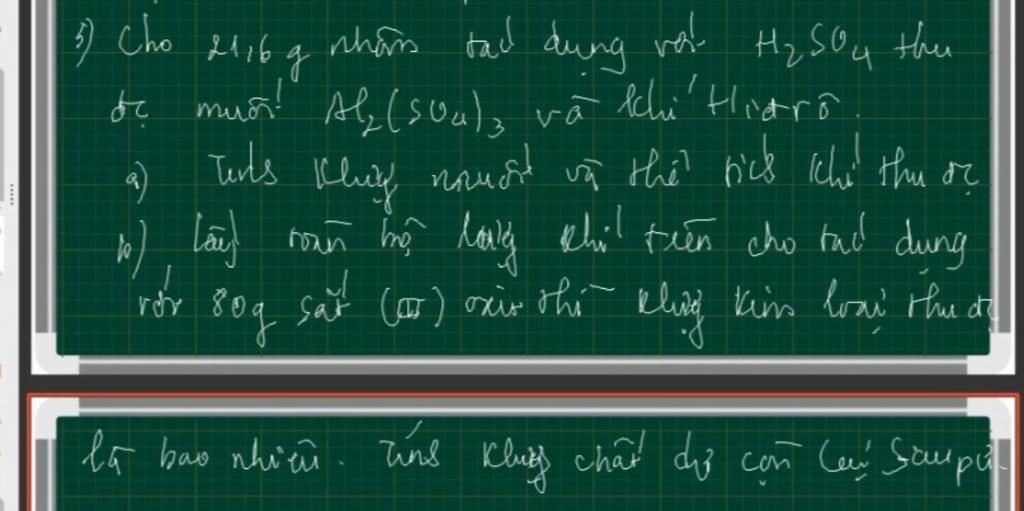 5) Cho 21,6g nhôm tác dụng với H₂SO₄ thu
đc muối Al₂(SO₄)₃ và khí Hiđrô.
a) Tính klượng muối và thể tích khí thu đc
b) Lấy toàn bộ lượng khí trên cho tác dụng
với 80g sắt (III) oxit thì klượng kim loại thu đc
là bao nhiêu. Tính klượng chất dư còn lại sau pứ